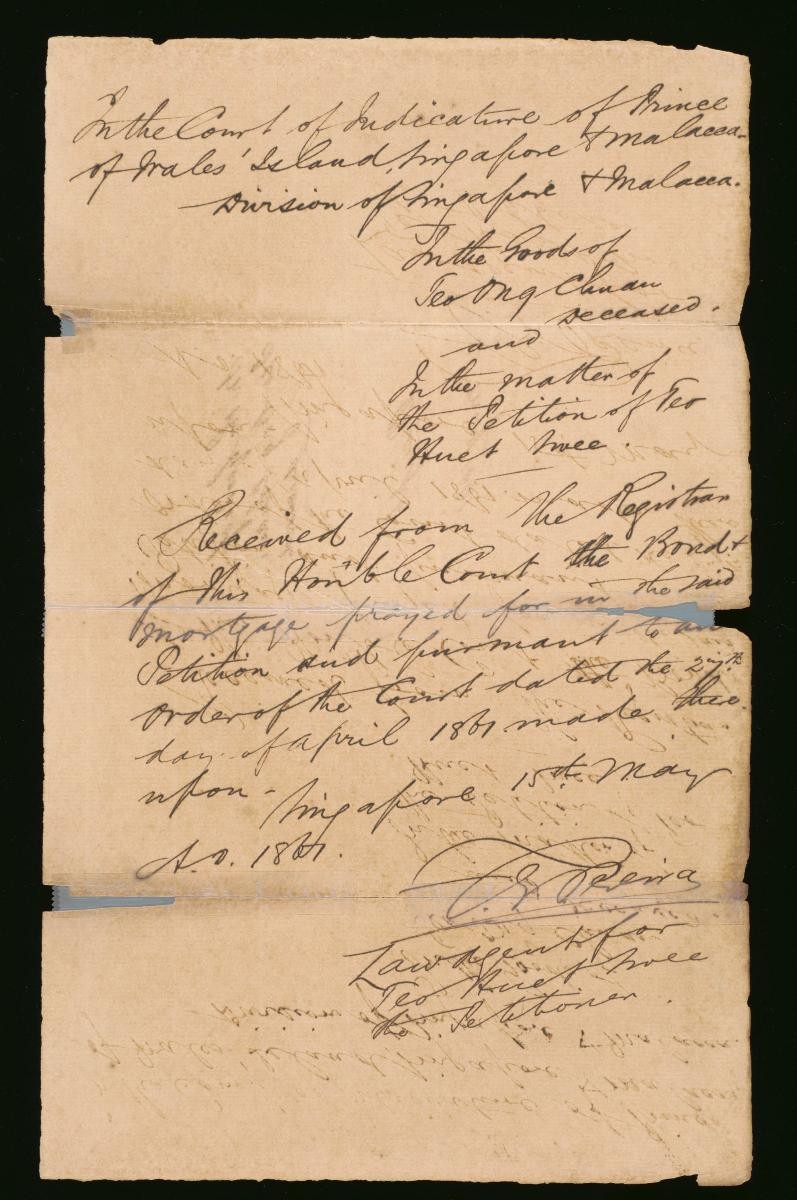 In the Court of Judicature of Prince
of Wales' Island, Singapore & Malacca.
Division of Singapore & Malacca.
In the Goods of
Teo Ong Chuan
deceased.
and
In the matter of
the Petition of Teo
Huet Swee.
Received from the Registrar
of this Hon'ble Court the Bond &
mortgage prayed for in the said
Petition and pursuant to an
order of the Court dated the
day of April 1861 made there
upon - Singapore 15th May
A.D. 1861.
Pereira
Law Agent for
Teo Huet Swee
the Petitioner.